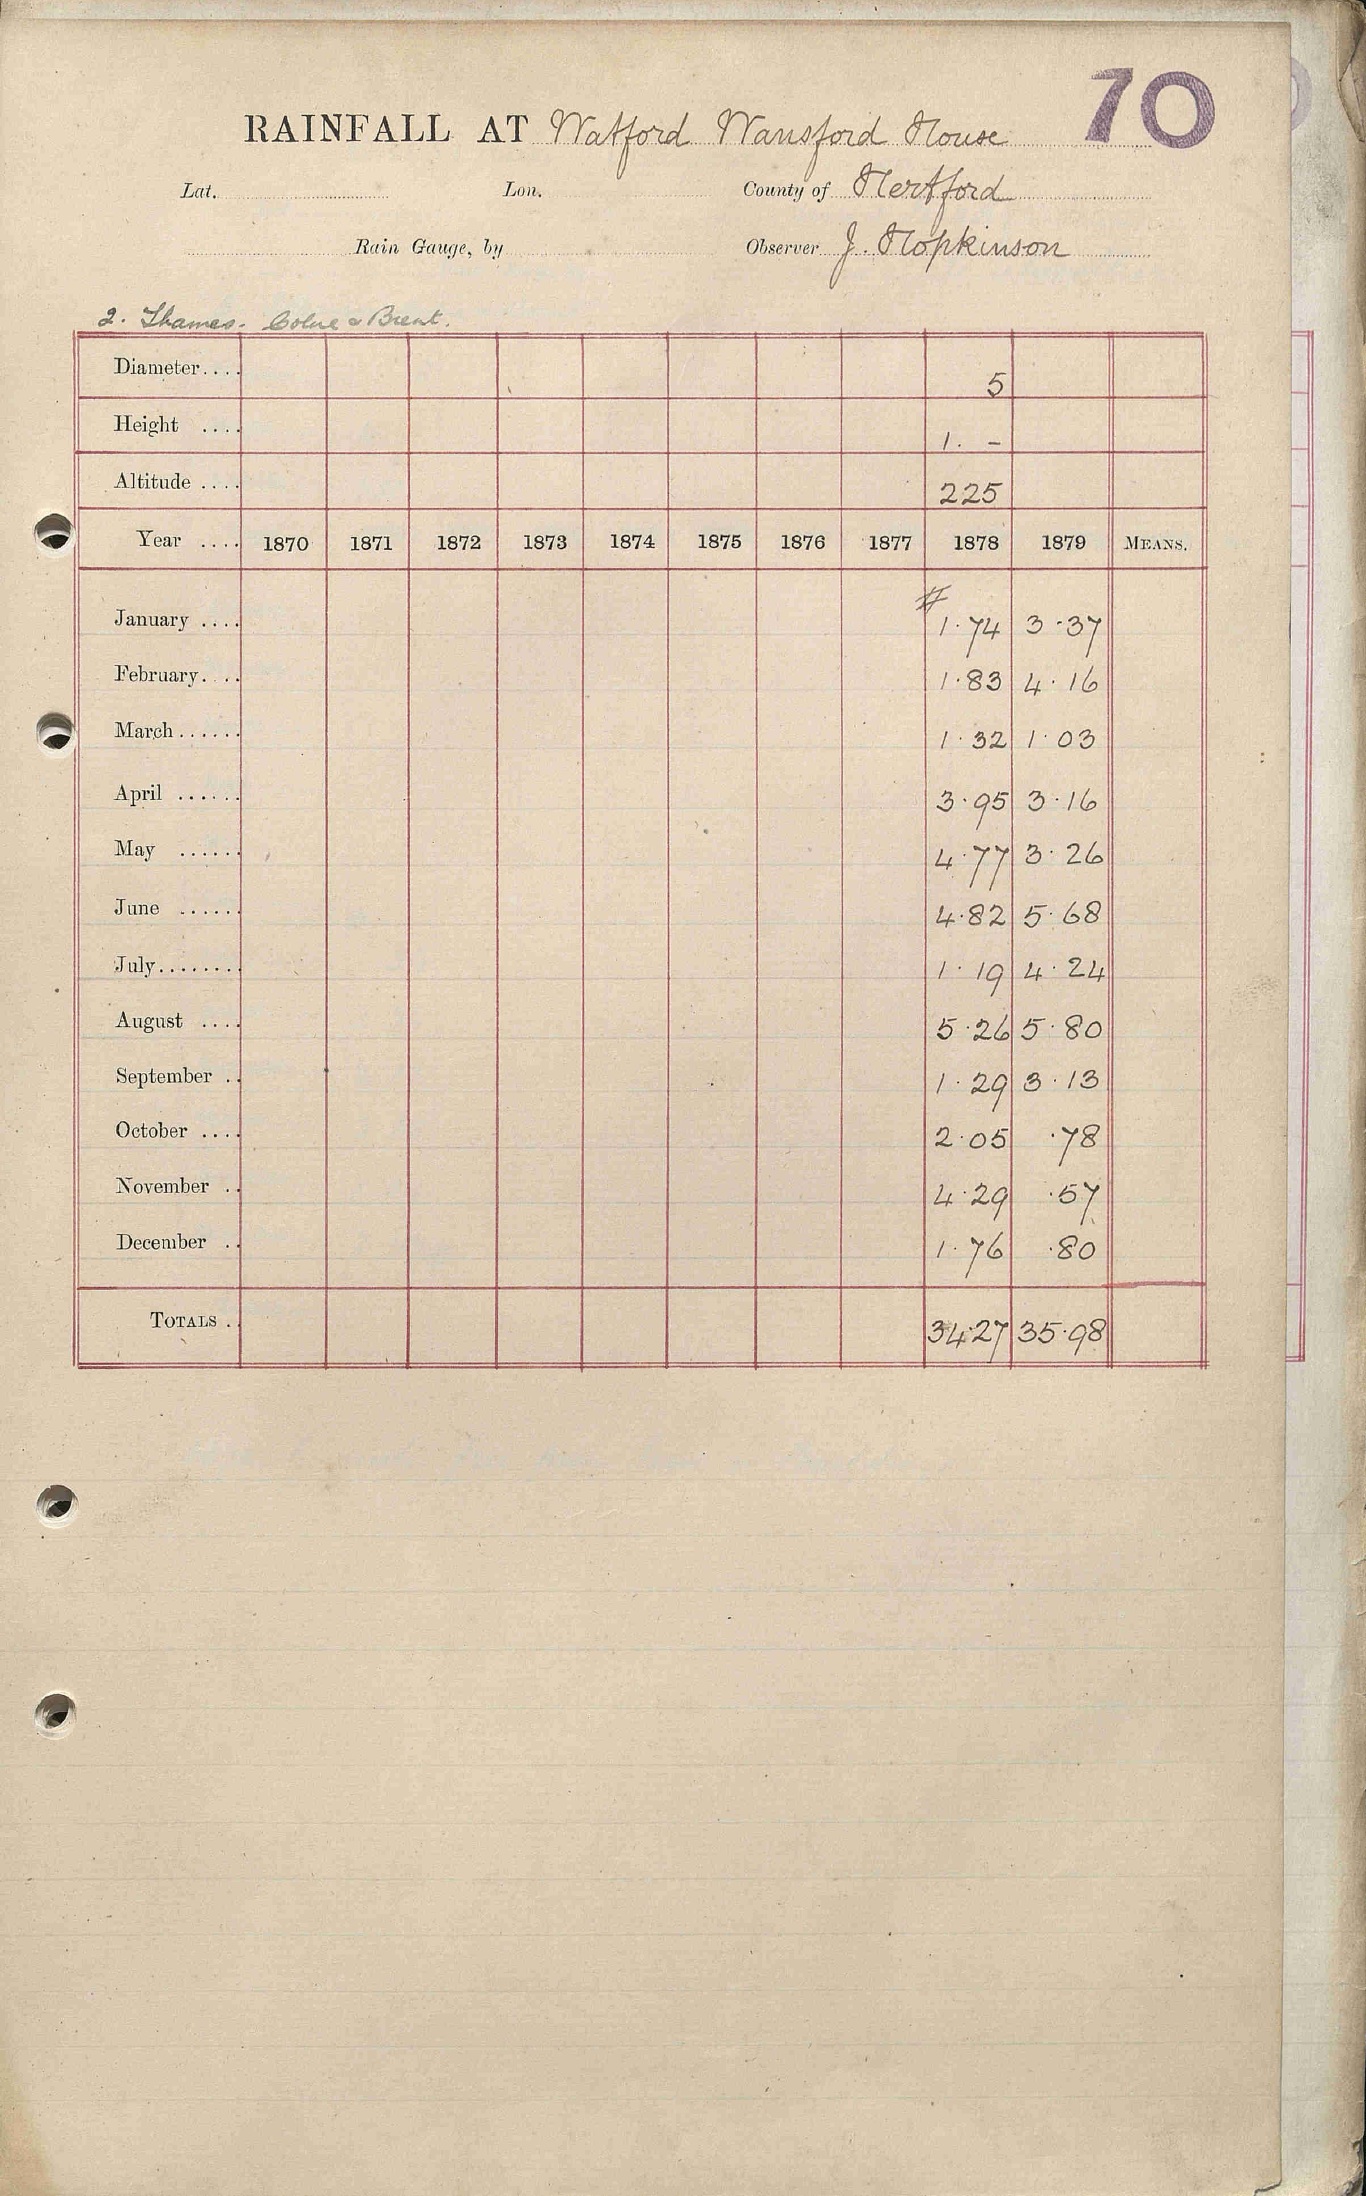 70
RAINFALL AT Watford Wansford House
Lat. Lon. County of Hertford
Rain Gauge, by Observer J. Hopkinson
2. Thames. Colne & Brent.
Diameter.... 5
Height .... 1. -
Altitude .... 225
Year .... 1870 1871 1872 1873 1874 1875 1876 1877 1878 1879 MEANS.
#
January .... 1.74 3.37
February.... 1.83 4.16
March...... 1.32 1.03
April ...... 3.95 3.16
May ...... 4.77 3.26
June ...... 4.82 5.68
July........ 1.19 4.24
August .... 5.26 5.80
September .. 1.29 3.13
October .... 2.05 .78
November .. 4.29 .57
December .. 1.76 .80
TOTALS . 34.27 35.98